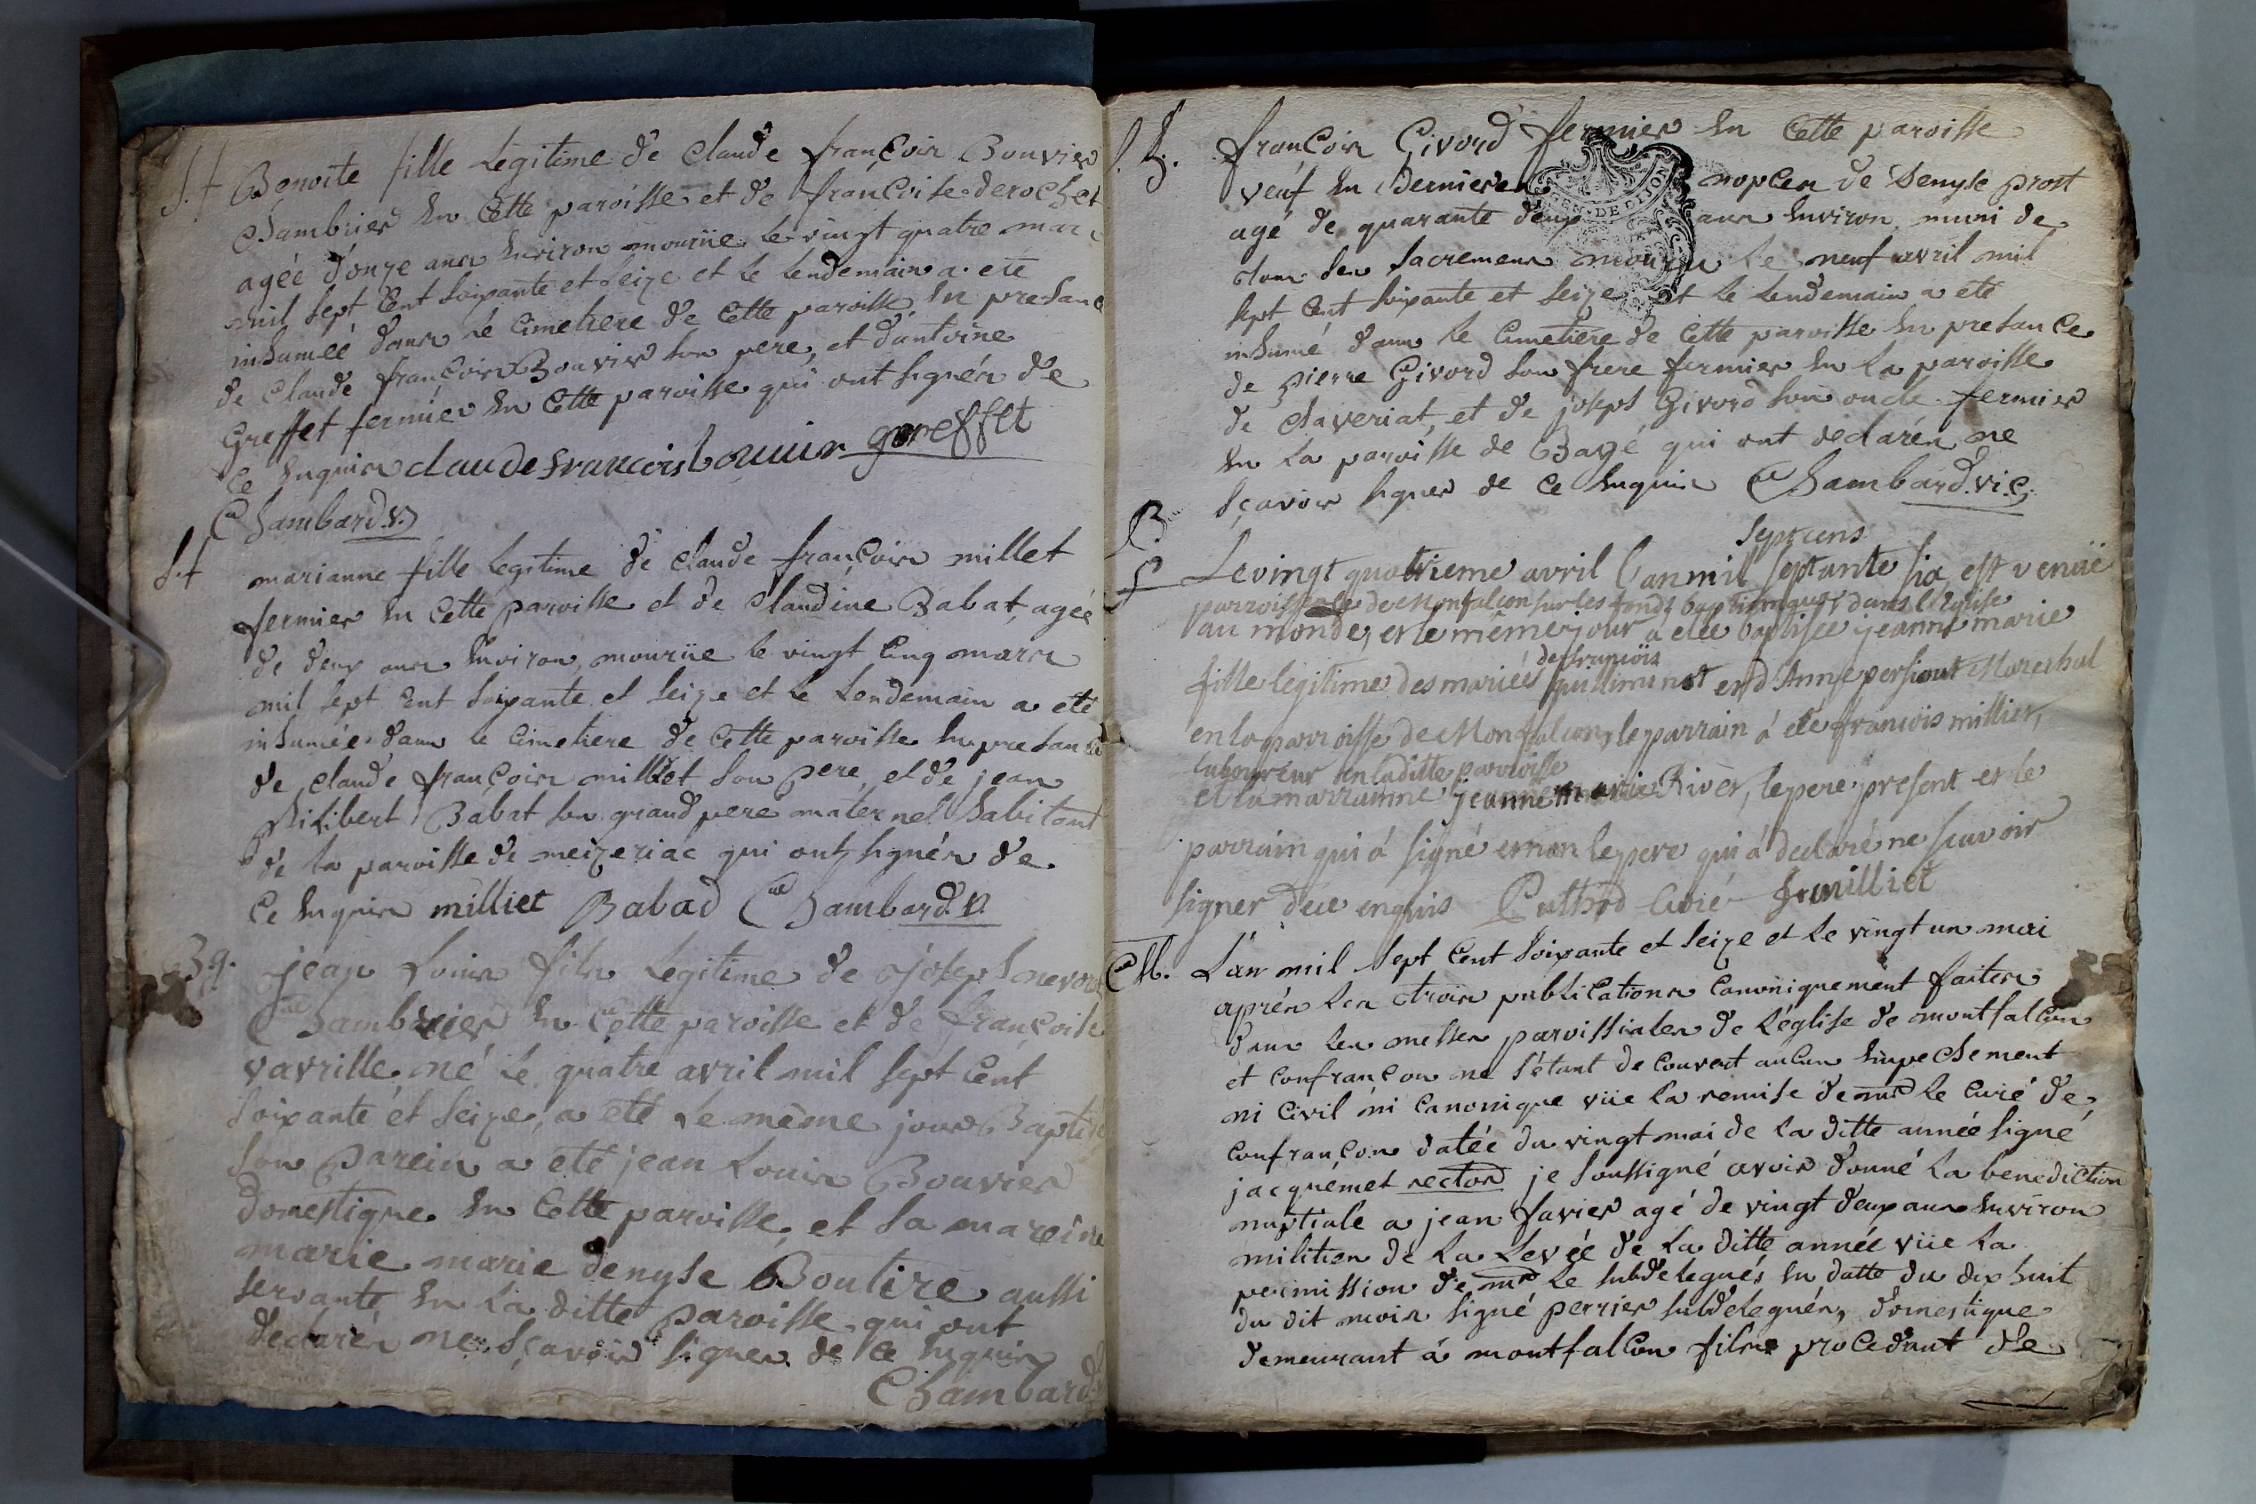 S.f Benoite fille Legitime de Claude françois Bouvier
Chambrier en Cette paroisse et de françoise derochet
agée d'onze ans environ mourüe le vingt quatre mars
mil sept Cent soixante et seize et le lendemain a eté
inhumée dans le Cimetiere de Cette paroisse en presance
de Claude françois Bouvier son pere, et d'antoine
Greffet fermier en Cette paroisse qui ont signés de
Ce enquis claude francois bouuier greffet
Chambard.v.
S.f marianne fille Legitime de Claude françois millet
fermier en Cette paroisse et de Claudine Babat, agée
de deux ans environ, mourüe le vingt Cinq mars
mil sept Cent soixante et seize et le Lendemain a eté
inhumée dans le Cimetiere de Cette paroisse en presance
de Claude françois milliet son pere, et de jean
philibert Babat son grand pere maternel habitant
de la paroisse de meizeriac qui ont signés de
Ce enquis milliet Babad Chambard.v.
B.g. jean Louis fils Legitime de joseph nevord
Chambrier en Cette paroisse et de françoise
vavrille, né le quatre avril mil sept Cent
soixante et seize, a eté le même jour Baptisé
son parein a eté jean Louis Bouvier
domestique en Cette paroisse, et sa mareine
marie marie denyse Boutire aussi
servante en la ditte paroisse, qui ont
declarés ne sçavoir signer de ce enquis
Chambard
S.h. françois Givord fermier en Cette paroisse
veuf en dernieres nopces de Denyse prost
agé de quarante deux ans environ muni de
tous ses sacremens mouru le neuf avril mil
sept Cent soixante et seize et le Lendemain a eté
inhumé dans le Cimetiere de Cette paroisse en presance
de pierre Givord son frere fermier en la paroisse
de Chaveriat, et de joseph Givord son oncle fermier
en La paroisse de Bagé qui ont declarés ne
sçavoir signer de Ce enquis Chambard.vic.
B
septcens
f Le vingt quatrieme avril l'an mil septante six est venuë
parroissiale de Monfalcon sur les fonds baptismaux dans l'Eglise
au monde, et le même jour a etée baptisée jeanne marie
de françois
fille légitime des mariés guilliminot et d'Anne persiaut Marechal
en la parroisse de Monfalcon, le parrain á eté françois millier,
laboureur en laditte parroisse
et la marrainne jeanne marie River, le pere present et le
parrain qui á signé et non le pere qui á declaré ne scavoir
signer de ce enquis Cuthod Curé fr milliet
M. L'an mil sept Cent soixante et seize et le vingt un mai
aprés les trois publications Canoniquement faites
dans les messes paroissiales de L'église de montfalcon
et confrançon ne s'étant decouvert aucun empechement
ni Civil ni Canonique vüe la remise de mr le Curé de
confrançon datée du vingt mai de la ditte année signé
jacquémet rector je soussigné avoir donné La benediction
nuptiale a jean favier agé de vingt deux ans environ
militien de La Levée de La ditte année vüe La
permission de mr le subdelegués en datte du dix huit
du dit mois signé perrier subdelegués, domestique
demeurant á montfalcon fils procedant de